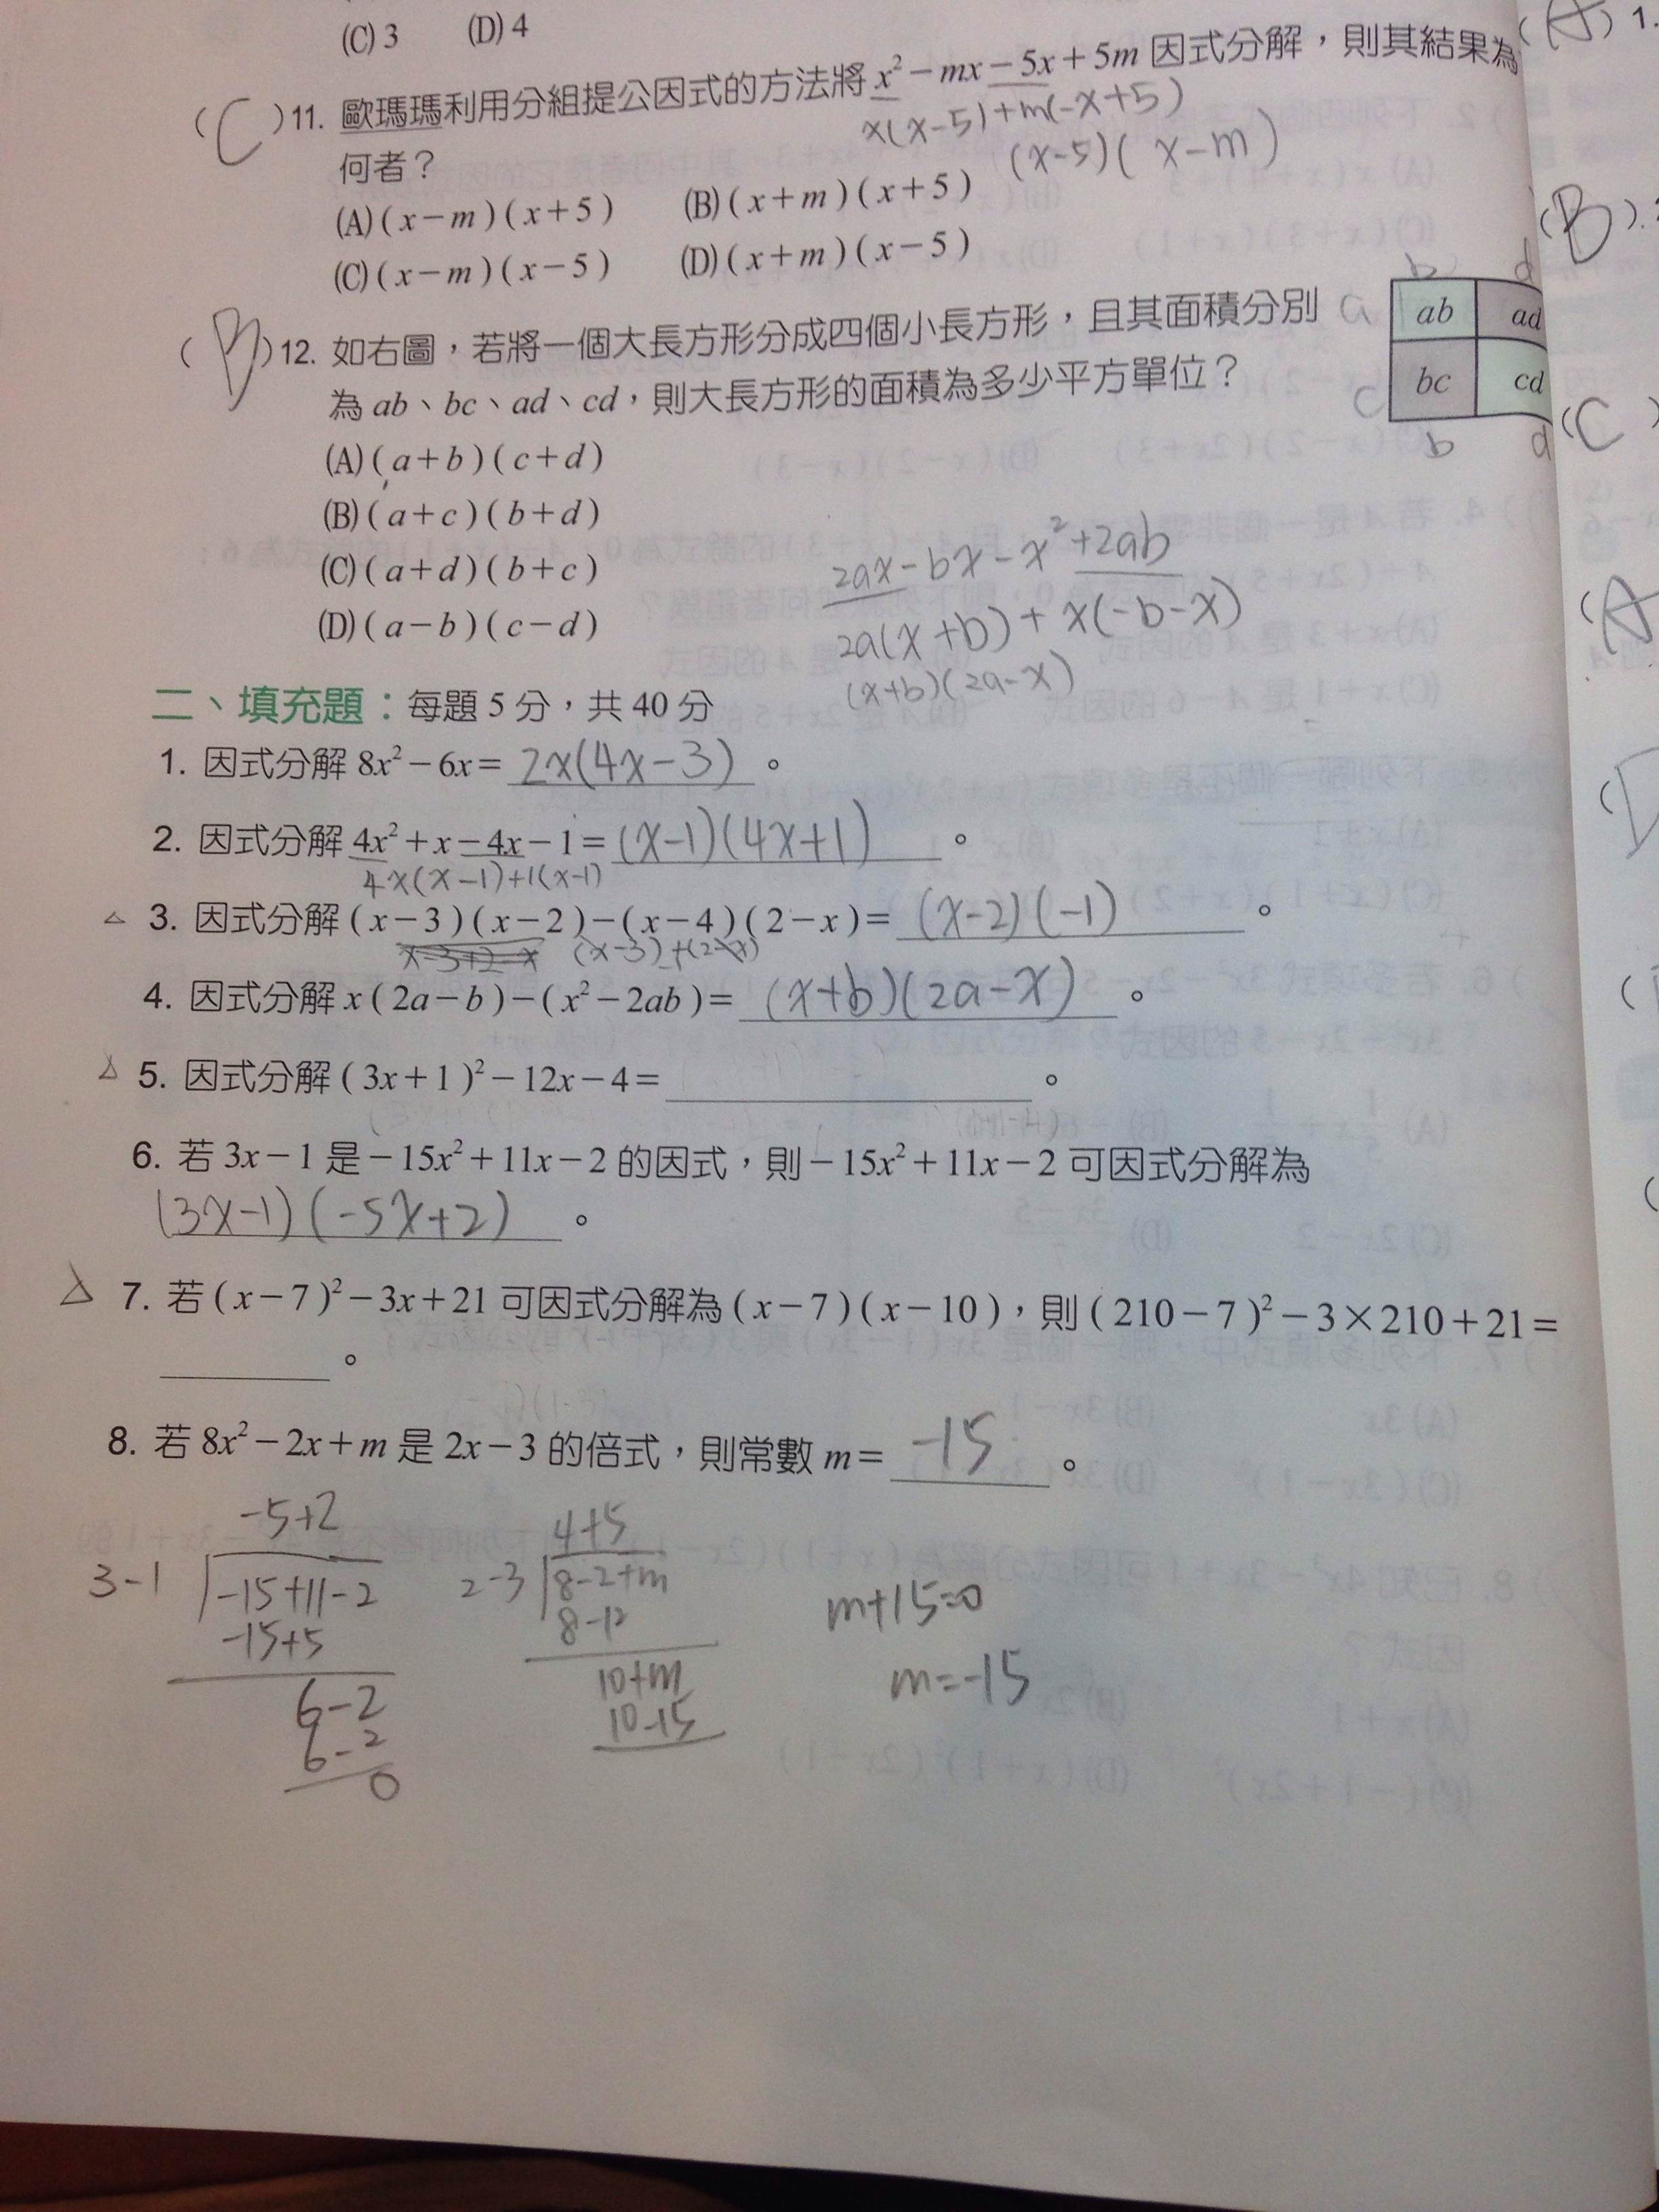 (C) 3 (D) 4
(C) 11. 歐瑪瑪利用分組提公因式的方法將 x² − mx − 5x + 5m 因式分解，則其結果為
x(x-5)+m(-x+5)
何者？
(x-5)(x-m)
(A) ( x − m ) ( x + 5 ) (B) ( x + m ) ( x + 5 )
(C) ( x − m ) ( x − 5 ) (D) ( x + m ) ( x − 5 )
(B) 12. 如右圖，若將一個大長方形分成四個小長方形，且其面積分別
為 ab、bc、ad、cd，則大長方形的面積為多少平方單位？
b d
a ab ad
c bc cd
b d
(A) ( a + b ) ( c + d )
(B) ( a + c ) ( b + d )
(C) ( a + d ) ( b + c )
(D) ( a − b ) ( c − d )
2ax-bx-x²+2ab
2a(x+b)+x(-b-x)
(x+b)(2a-x)
二、填充題：每題 5 分，共 40 分
1. 因式分解 8x² − 6x = 2x(4x-3) 。
2. 因式分解 4x² + x − 4x − 1 = (x-1)(4x+1) 。
4x(x-1)+1(x-1)
△ 3. 因式分解 ( x − 3 ) ( x − 2 ) − ( x − 4 ) ( 2 − x ) = (x-2)(-1) 。
x-3+2-x (x-3)+(2-x)
4. 因式分解 x ( 2a − b ) − ( x² − 2ab ) = (x+b)(2a-x) 。
△ 5. 因式分解 ( 3x + 1 )² − 12x − 4 = 。
6. 若 3x − 1 是 − 15x² + 11x − 2 的因式，則 − 15x² + 11x − 2 可因式分解為
(3x-1)(-5x+2) 。
△ 7. 若 ( x − 7 )² − 3x + 21 可因式分解為 ( x − 7 ) ( x − 10 )，則 ( 210 − 7 )² − 3 × 210 + 21 =
。
8. 若 8x² − 2x + m 是 2x − 3 的倍式，則常數 m = -15 。
-5+2
3-1 -15+11-2
-15+5
6-2
6-2
0
4+5
2-3 8-2+m
8-12
10+m
10-15
m+15=0
m=-15
(A) 1.
(B)
(C)
(A